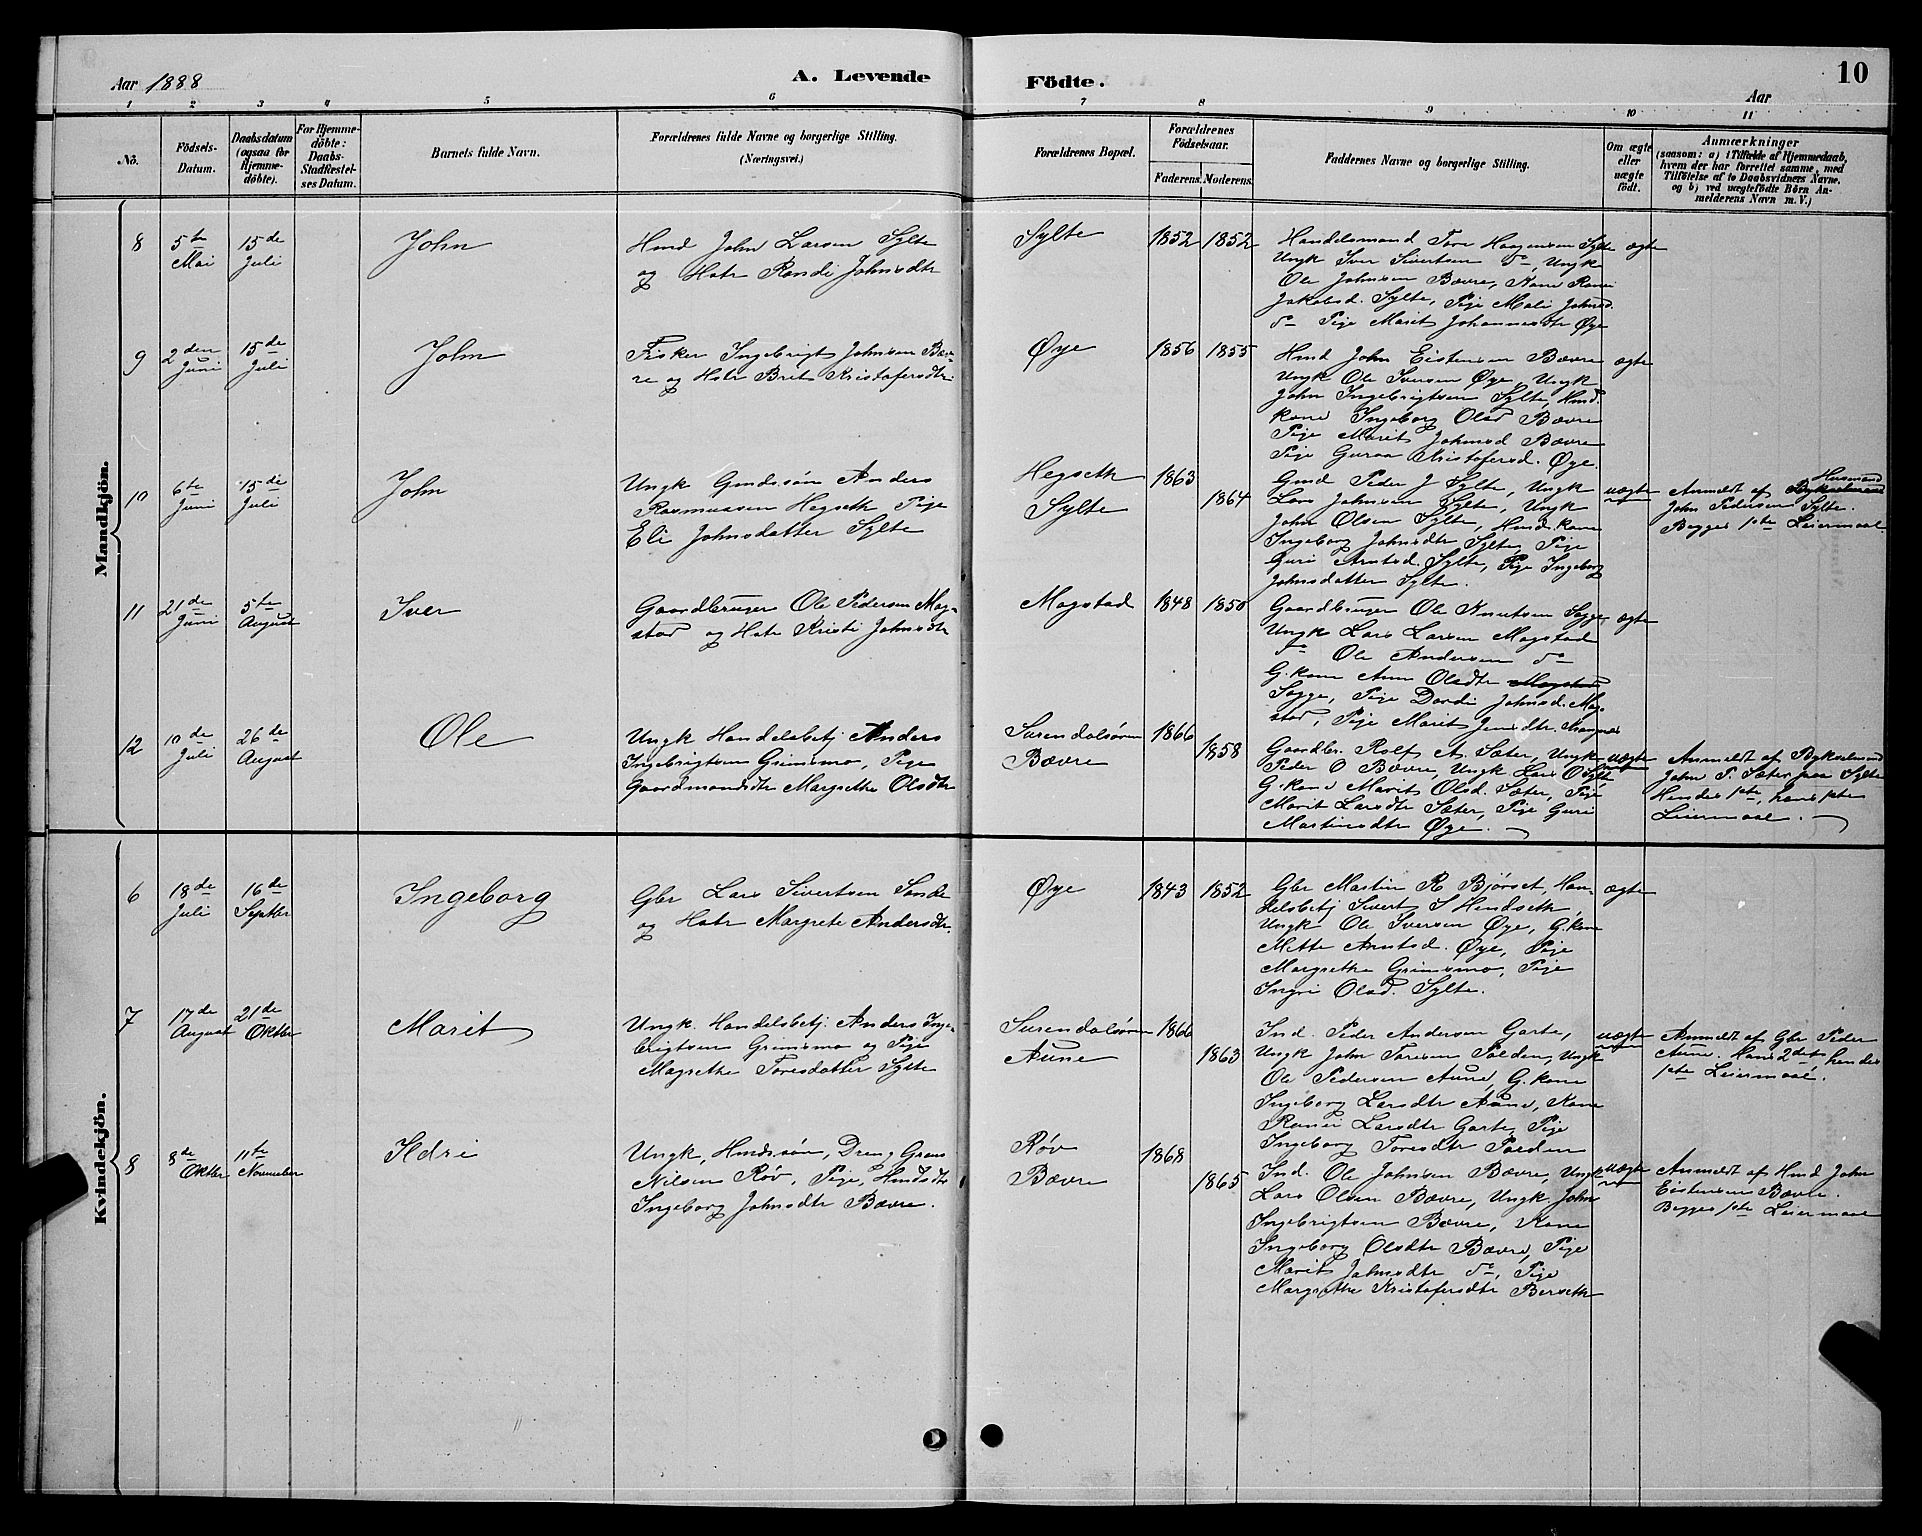 Aar 1888
A. Levende
Födte.
10
Aar
1 2 3 4 5 6 7 8 9 10 11
No.
Födsels-
Datum.
Daabsdatum
(ogsaa for
Hjemme-
döbte).
For Hjemme-
döbte:
Daabs-
Stadfæstel-
ses Datum.
Barnets fulde Navn.
Forældrenes fulde Navne og borgerlige Stilling.
(Næringsvei.)
Forældrenes Bopæl.
Forældrenes
Födselsaar.
Faderens. Moderens.
Faddernes Navne og borgerlige Stilling.
Om ægte
eller
uægte
födt.
Anmærkninger
(saasom: a) i Tilfælde af Hjemmedaab,
hvem der har forrettet samme, med
Tilföielse af to Daabsvidners Navne,
og b) ved uægtefödte Börn An-
melderens Navn m. V.)
Mandkjön.
8
5te
Mai
15de
Juli
John
Hmd John Larsen Sylte
og Hstr Randi Johnsdtr
Sylte
1852
1852
Handelsmand Tore Haagensen Sylte
Ungk Iver Sivertsen do, Ungk
Ole Johnsen Bævre, Kone
Jakobsd. Sylte, Pige Mali Johnsd.
do Pige Marit Johannesdtr Øye
ægte
9
2den
Juni
15de
Juli
John
Fisker Ingebrigt Johnsen Bæv-
re og Hstr Brit Kristofersdtr
Øye
1856
1855
Hmd John Eistensen Bævre
Ungk Ole Iversen Øye, Ungk
John Ingebrigtsen Sylte, Hmd.
kone Ingeborg Olsd Bævre
Pige Marit Johnsd Bævre
Pige Guraa Kristofersd. Øye.
ægte
10
6te
Juni
15de
Juli
John
Ungk Gmdssön Anders
Rasmussen Hegseth Pige
Eli Johnsdatter Sylte
Hegseth
Sylte
1863
1864
Gmd Peder J Sylte, Ungk
Lars Johnsen Sylte, Ungk
John Olsen Sylte, Hmd. kone
Ingeborg Johnsdtr Sylte, Pige
Guri Arntsd. Sylte, Pige Ingeborg
Johnsdatter Sylte.
uægte
Husmand
Anmeldt af
John Pedersen Sylte.
Begges 1ste Leiermaal
11
21de
Juni
5te
August
Iver
Gaardbruger Ole Pedersen Mog-
stad og Hstr Kristi Johnsdtr
Mogstad
1848
1850
Gaardbruger Ole Knutsen Sogge
Ungk Lars Larsen Mogstad
do Ole Andersen do
G.kone Ane Olsdtr Mogstad
Sogge, Pige Dordi Johnsd. Mog-
stad, Pige Marit Jensdtr
ægte
12
10de
Juli
26de
August
Ole
Ungk Handelsbetj Anders
Ingebrigtsen Grimsmo, Pige
Gaardmandsdtr Margrethe Olsdtr
Surendalsören
Bævre
1866
1858
Gaardbr. Rolf A. Sæter, Ungk
Peder O Bævre, Ungk Lars O Sylte
G.kone Marit Olsd. Sæter, Pige
Marit Larsdtr Sæter, Pige Guri
Martinsdtr Øye.
uægte
Anmeldt af Bykselmand
John P. Sæter paa Sylte
Hendes 1ste, hans 1ste
Leiermaal.
Kvindekjön.
6
18de
Juli
16de
Septber
Ingeborg
Gbr Lars Sivertsen Sande
og Hstr Margrete Andersdtr.
Øye
1843
1852
Gbr Martin R Bjørset, Han-
delsbetj Sivert S Hendseth,
Ungk Ole Iversen Øye, G.kone
Mette Arntsd. Øye, Pige
Margrethe Grimsmo, Pige
Ingri Olsd. Sylte.
ægte
7
17de
August
21de
Oktber
Marit
Ungk. Handelsbetj. Anders Inge-
brigtsen Grimsmo og Pige
Magrethe Toresdatter Sylte
Surendalsören
Aune
1866
1863
Ind. Peder Andersen Garte,
Ungk John Toresen Polden, Ungk
Ole Pedersen Aune, G.kone
Ingeborg Larsdtr Aune, Kone
Larsdtr Garte, Pige
Ingeborg Toresdtr Polden
uægte
Anmeldt af Gbr Peder
Aune. Hans 2det hendes
1ste Leiermaal.
8
8de
Oktber
11te
November
Ildri
Ungk, Hmdssön, Dreng
Nilsen Røv, Pige, Hmdsdtr
Ingeborg Johnsdtr Bævre.
Røv
Bævre
1868
1865
Ind. Ole Johnsen Bævre, Ungk
Lars Olsen Bævre, Ungk. John
Ingebrigtsen Bævre, Kone
Ingeborg Olsdtr Bævre, Pige
Marit Johnsdtr do, Pige
Margrethe Kristofersdtr
uægte
Anmeldt af Hmd John
Eistensen Bævre.
Begges 1ste Leiermaal